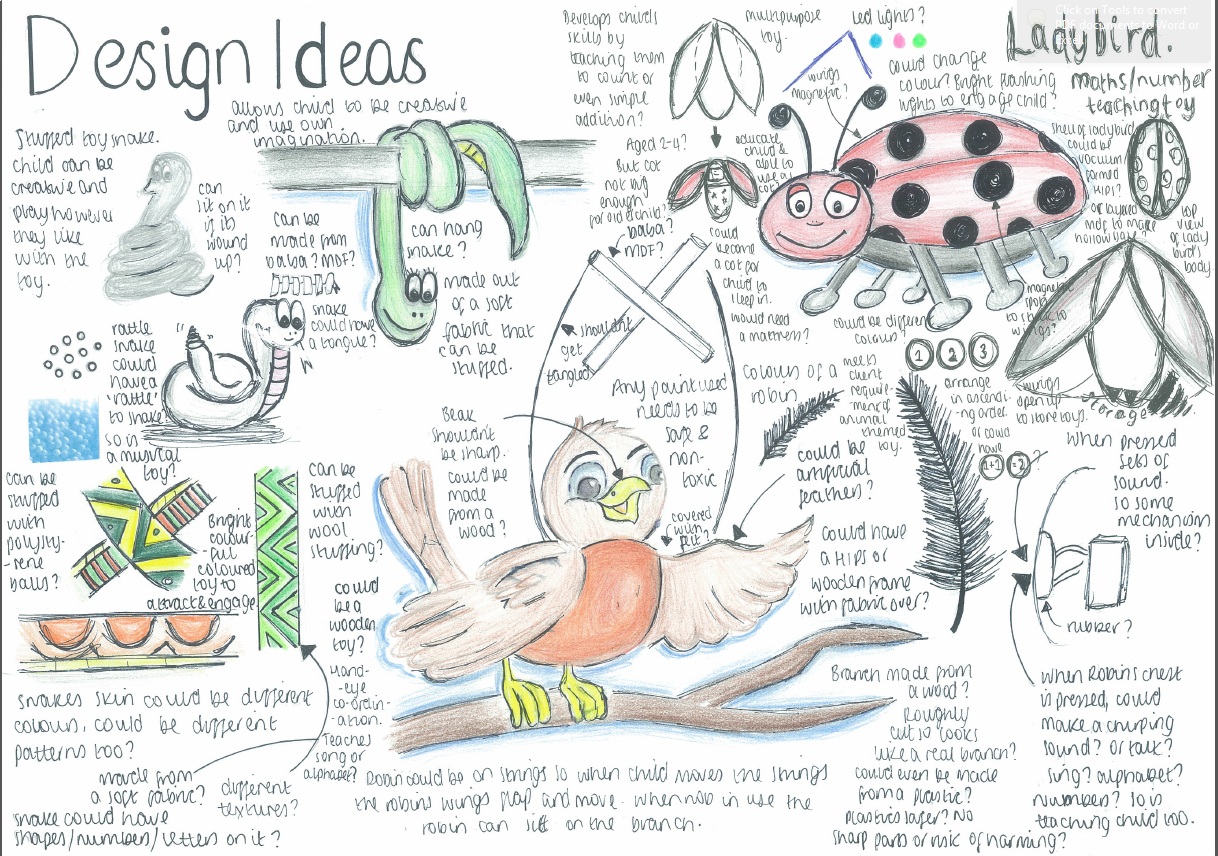 Design Ideas
Stuffed toy snake.
Child can be
creative and
play however
they like
with the
toy.
can
sit on it
if its
wound
up?
allows child to be creative
and use own
imagination.
can be
made from
balsa? MDF?
snake
could have
a tongue?
can hang
snake?
made out
of a soft
fabric that
can be
stuffed.
rattle
snake
could
have a
'rattle'
to shake
so is
a musical
toy?
can be
stuffed
with
polysty-
-rene
balls?
Bright
colour-
-ful
coloured
toy to
attract & engage
can be
stuffed
with
wool
stuffing?
could
be a
wooden
toy?
Hand-
-eye
co-ordin-
-ation.
Teaches
song or
alphabet?
Snakes skin could be different
colours, could be different
patterns too?
made from
a soft fabric?
different
textures?
snake could have
shapes/numbers/letters on it?
Develops child's
skills by
teaching them
to count or
even simple
addition?
multipurpose
toy.
Led lights?
wings
magnetic?
could change
colour? Bright flashing
lights to engage child?
Ladybird.
maths/number
teaching toy
Click on Tools to convert
PDF documents to Word or
Aged 2-4?
But cot
not big
enough
for older child?
educate
child &
able to
use as
cot?
could
become
a cot for
child to
sleep in.
would need
a mattress?
Shell of ladybird
could be
vacuum
formed
HIPS?
or layered
mdf to make
hollow body?
top
view of
lady
bird's
body.
magnetic
spots
to stick to
wings?
could be different
colours?
1 2 3
arrange
in ascendi-
-ng order
or could
have
1+1 =2 ?
wings
open up
to store toys.
storage
balsa?
MDF?
shouldn't
get
tangled
Any paint used
needs to be
safe &
non-
toxic
Beak
shouldn't
be sharp.
could be
made
from a
wood?
Colours of a
robin
meets
client
require-
-ment of
animal
themed
toy.
could be
artificial
feathers?
covered
with
felt?
could have
a HIPS or
wooden frame
with fabric over?
When pressed
sets of
sound.
so some
mechanism
inside?
rubber?
When Robins chest
is pressed, could
make a chirping
sound? or talk?
sing? alphabet?
numbers? so is
teaching child too.
Branch made from
a wood?
Roughly
cut so looks
like a real branch?
could even be made
from a plastic?
Plastics safer? No
sharp parts or risk of harming?
Robin could be on strings so when child moves the strings
the robins wings flap and move. When not in use the
robin can sit on the branch.